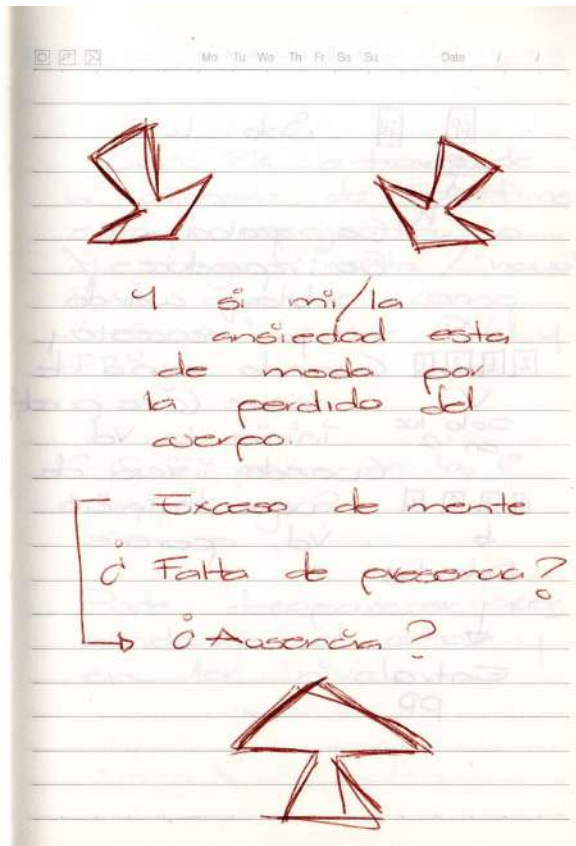 Mo Tu We Th Fr Sa Su Date / /
Y si mi/la
ansiedad esta
de moda por
la perdido del
cuerpo.
Exceso de mente
¿Falta de presencia?
¿Ausencia?